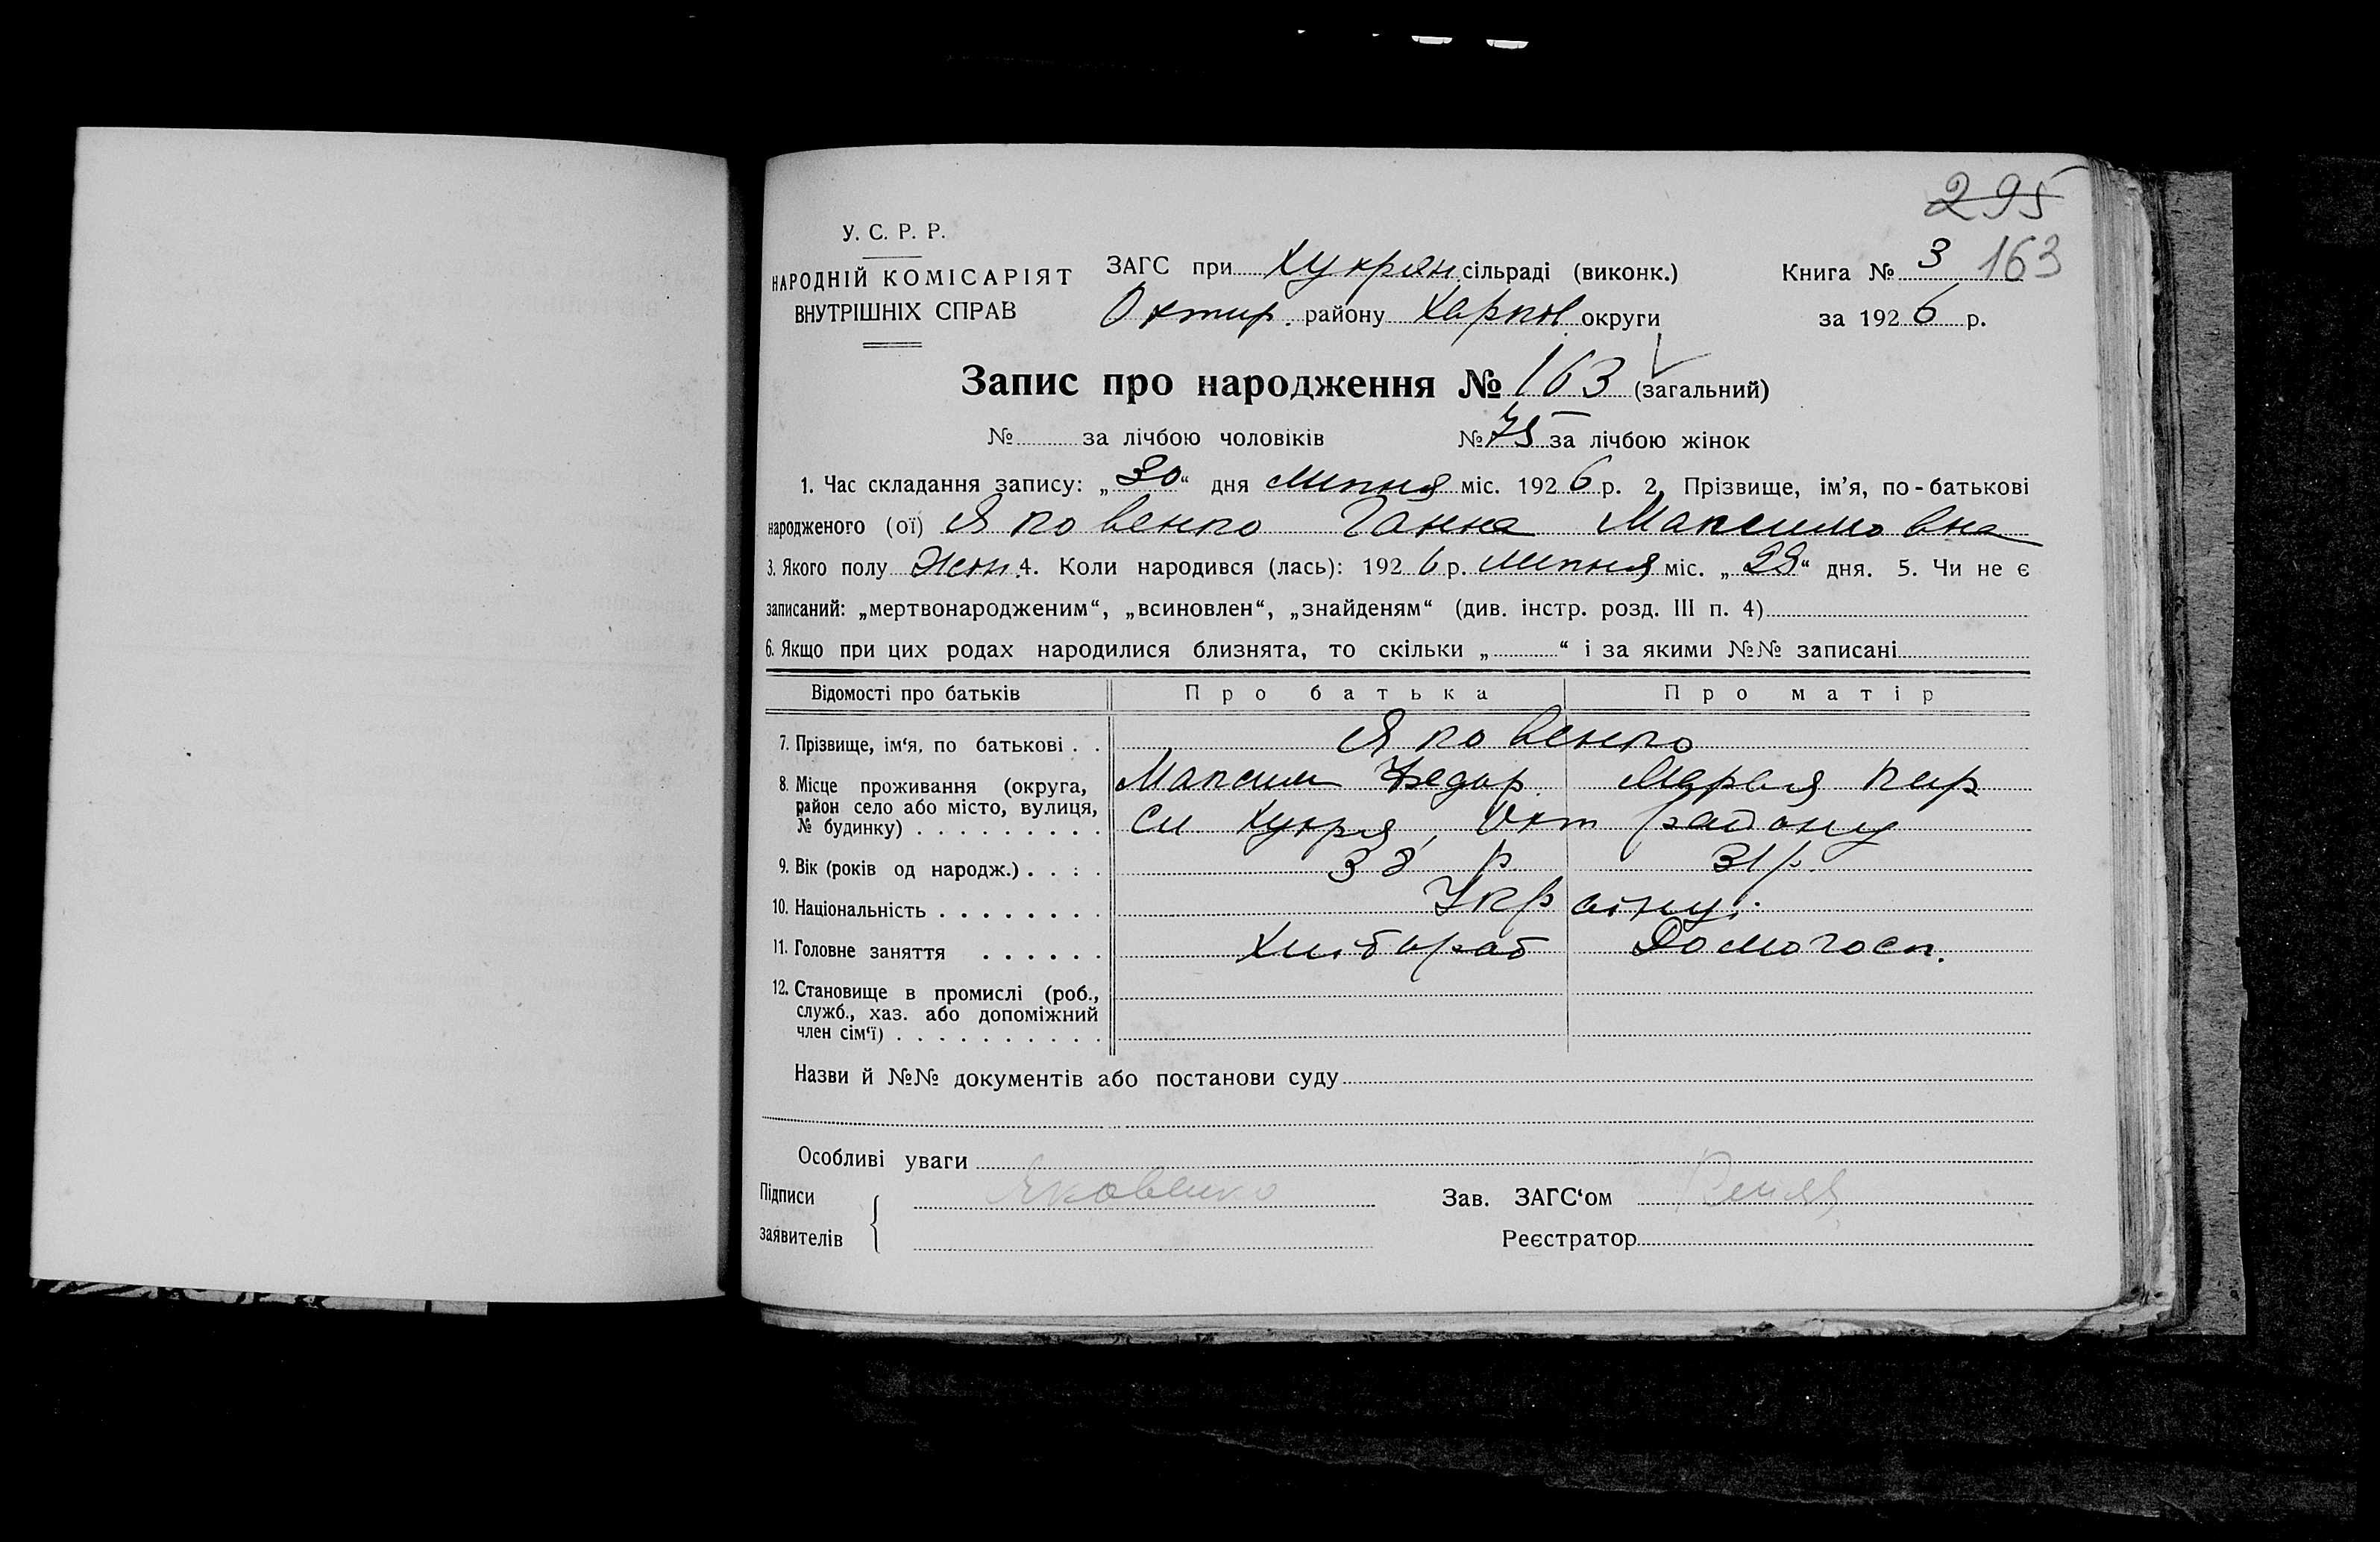 295
163
У. С. Р. Р.
НАРОДНІЙ КОМІСАРІЯТ
ВНУТРІШНІХ СПРАВ
ЗАГС при Хукрян сільраді (виконк.)
Охтир. району Харков. округи
Книга № 3
за 1926 р.
Запис про народження № 163 (загальний)
№ за лічбою чоловіків № 75 за лічбою жінок
1. Час складання запису: „30“ дня липня міс. 1926 р. 2. Прізвище, ім’я, по-батькові
народженого (ої) Яковенко Ганна Максимовна
3. Якого полу Жен. 4. Коли народився (лась): 1926 р. липня міс. „28“ дня. 5. Чи не є
записаний: „мертвонародженим“, „всиновлен“, „знайденям“ (див. інстр. розд. III п. 4)
6. Якщо при цих родах народилися близнята, то скільки „ “ і за якими №№ записані
Відомості про батьків Про батька Про матір
7. Прізвище, ім‘я, по батькові . . Яковенко
8. Місце проживання (округа, район село або місто, вулиця, № будинку) . . . . . . . . .
Максим Федор. Марья Кир
сл Хухря, Охт району
9. Вік (років од народж.) . . : . 38 р. 31 р.
10. Національність . . . . . . . . Україну.
11. Головне заняття . . . . . . Хлібороб Домогосп.
12. Становище в промислі (роб.,
служб., хаз. або допоміжний
член сім‘ї) . . . . . . . . . .
Назви й №№ документів або постанови суду
Особливі уваги
Підписи
заявителів
Яковенко
Зав. ЗАГС‘ом
Реєстратор